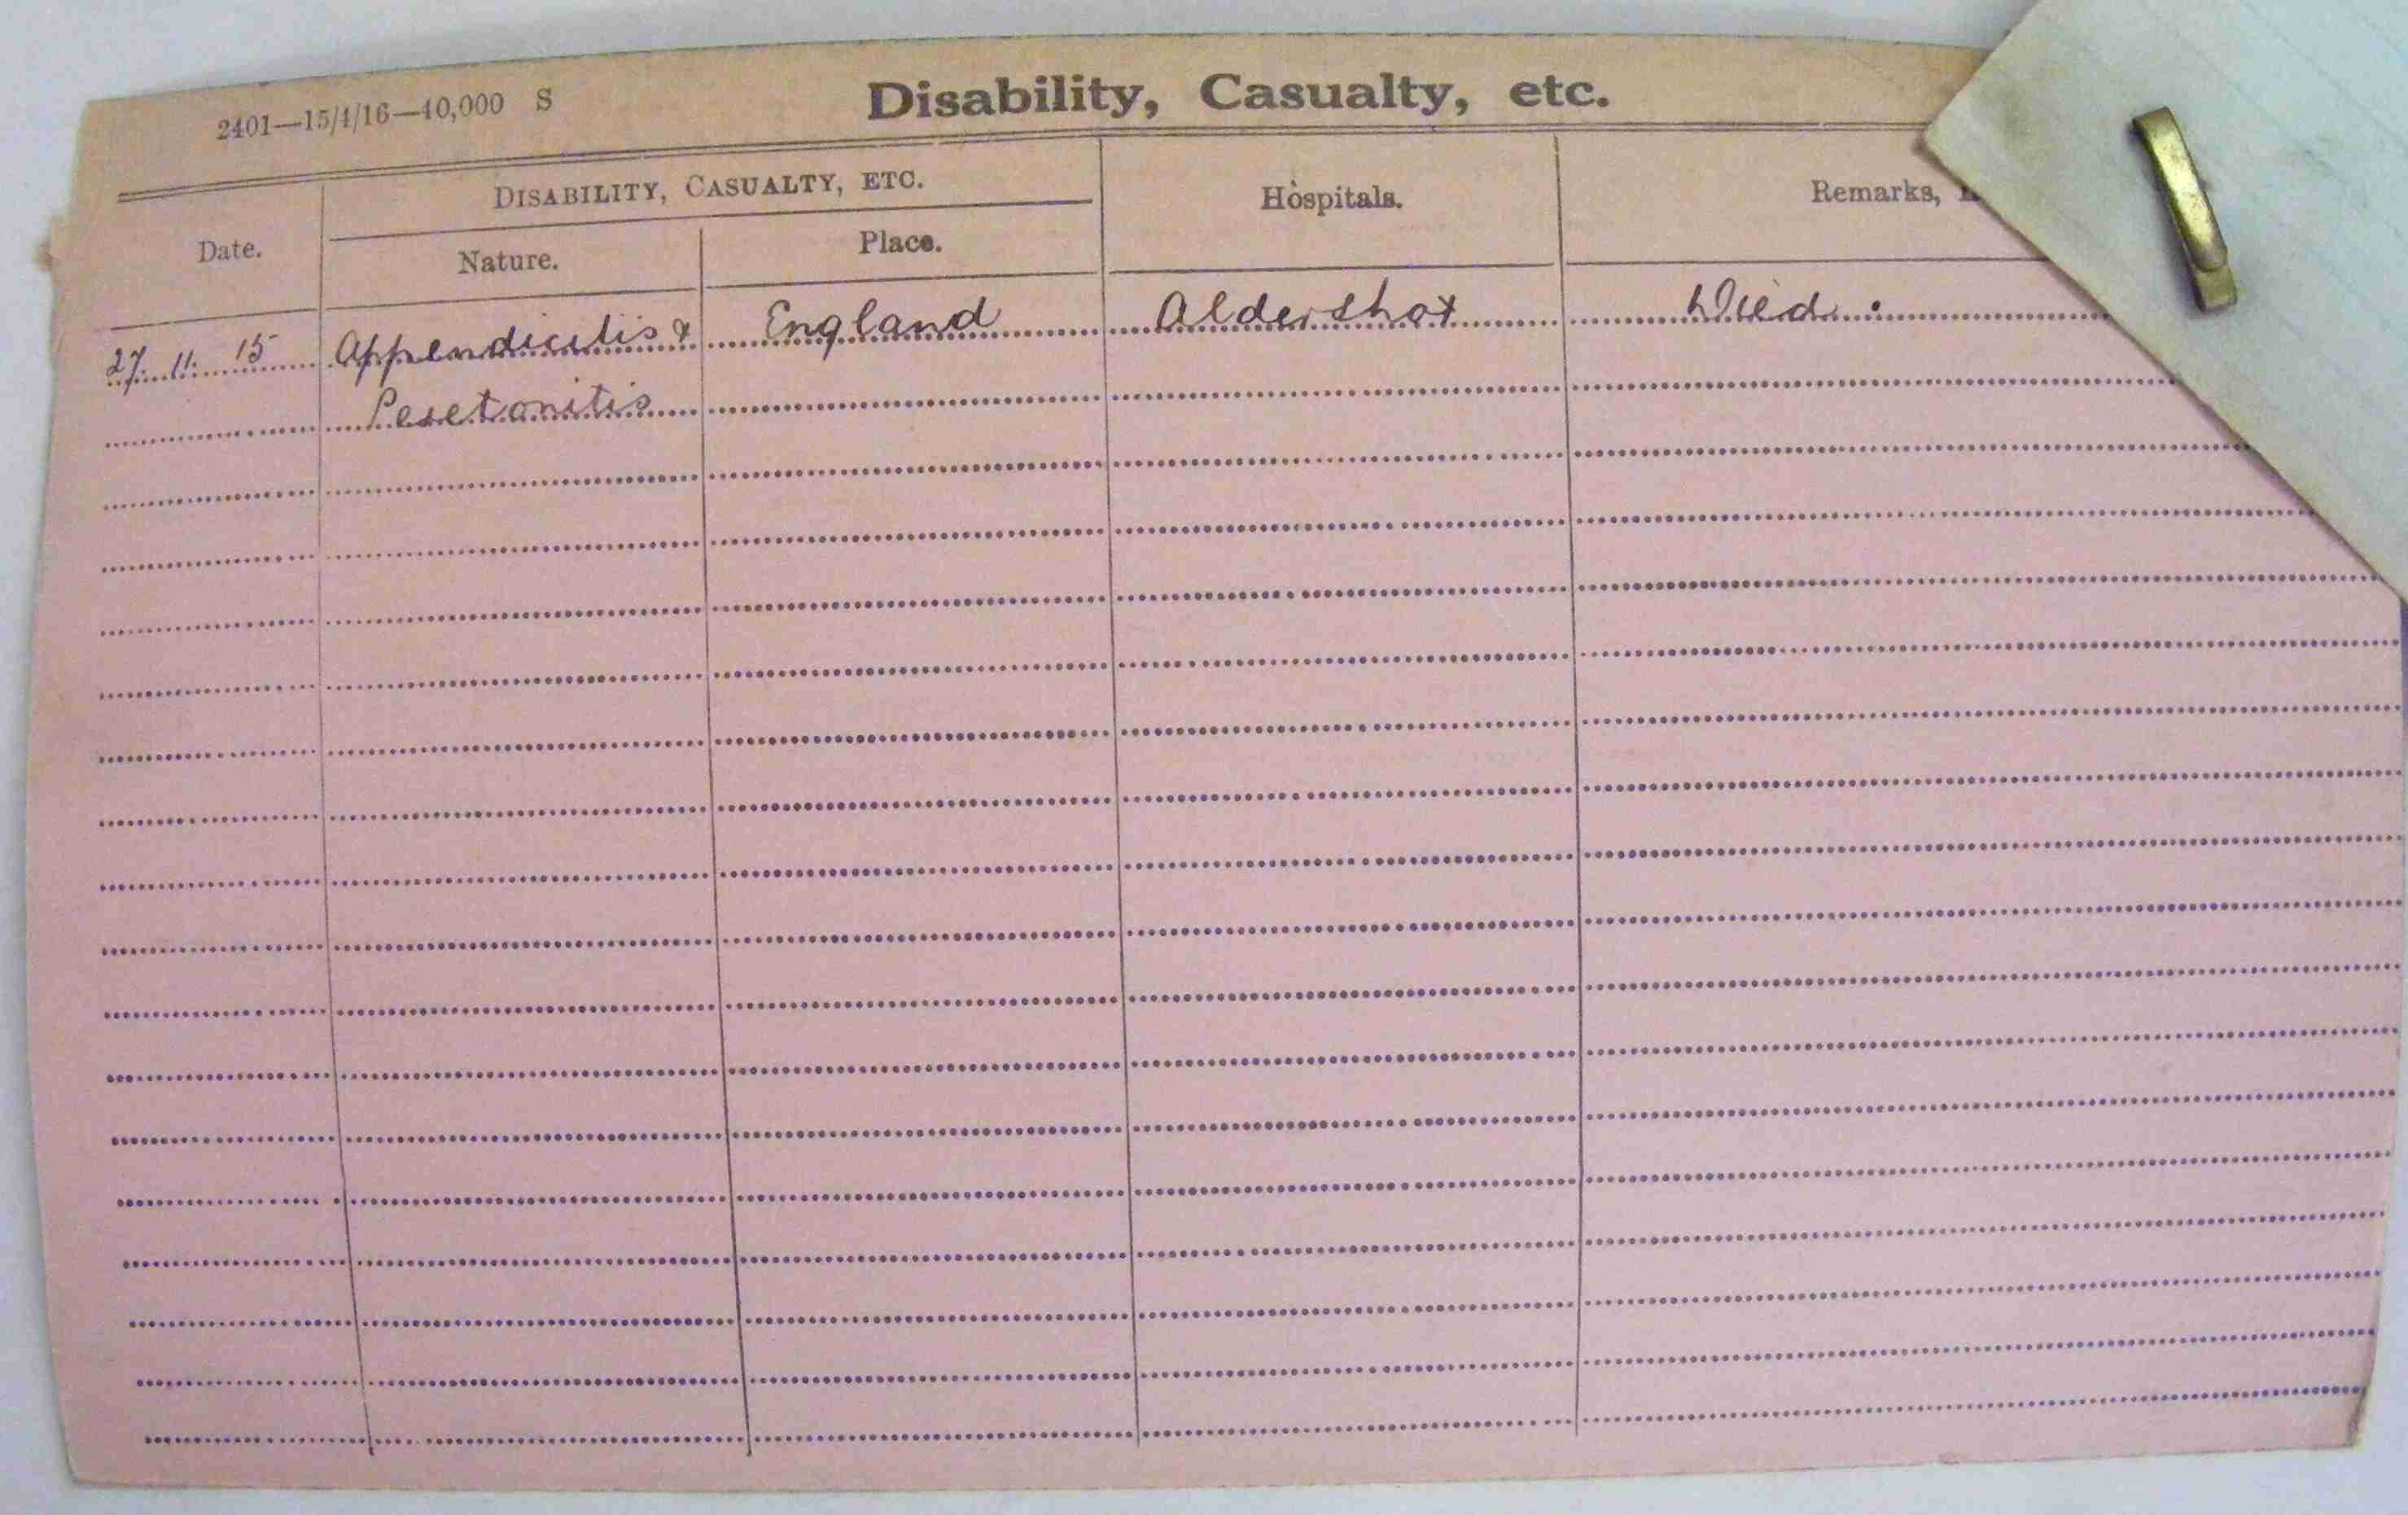 2401—15/4/16—40,000 S
Disability, Casualty, etc.
Date.
DISABILITY, CASUALTY, ETC.
Nature.
Place.
Hospitals.
Remarks,
27. 11. 15 Appendicitis & England Aldershot Died.
Peretonitis